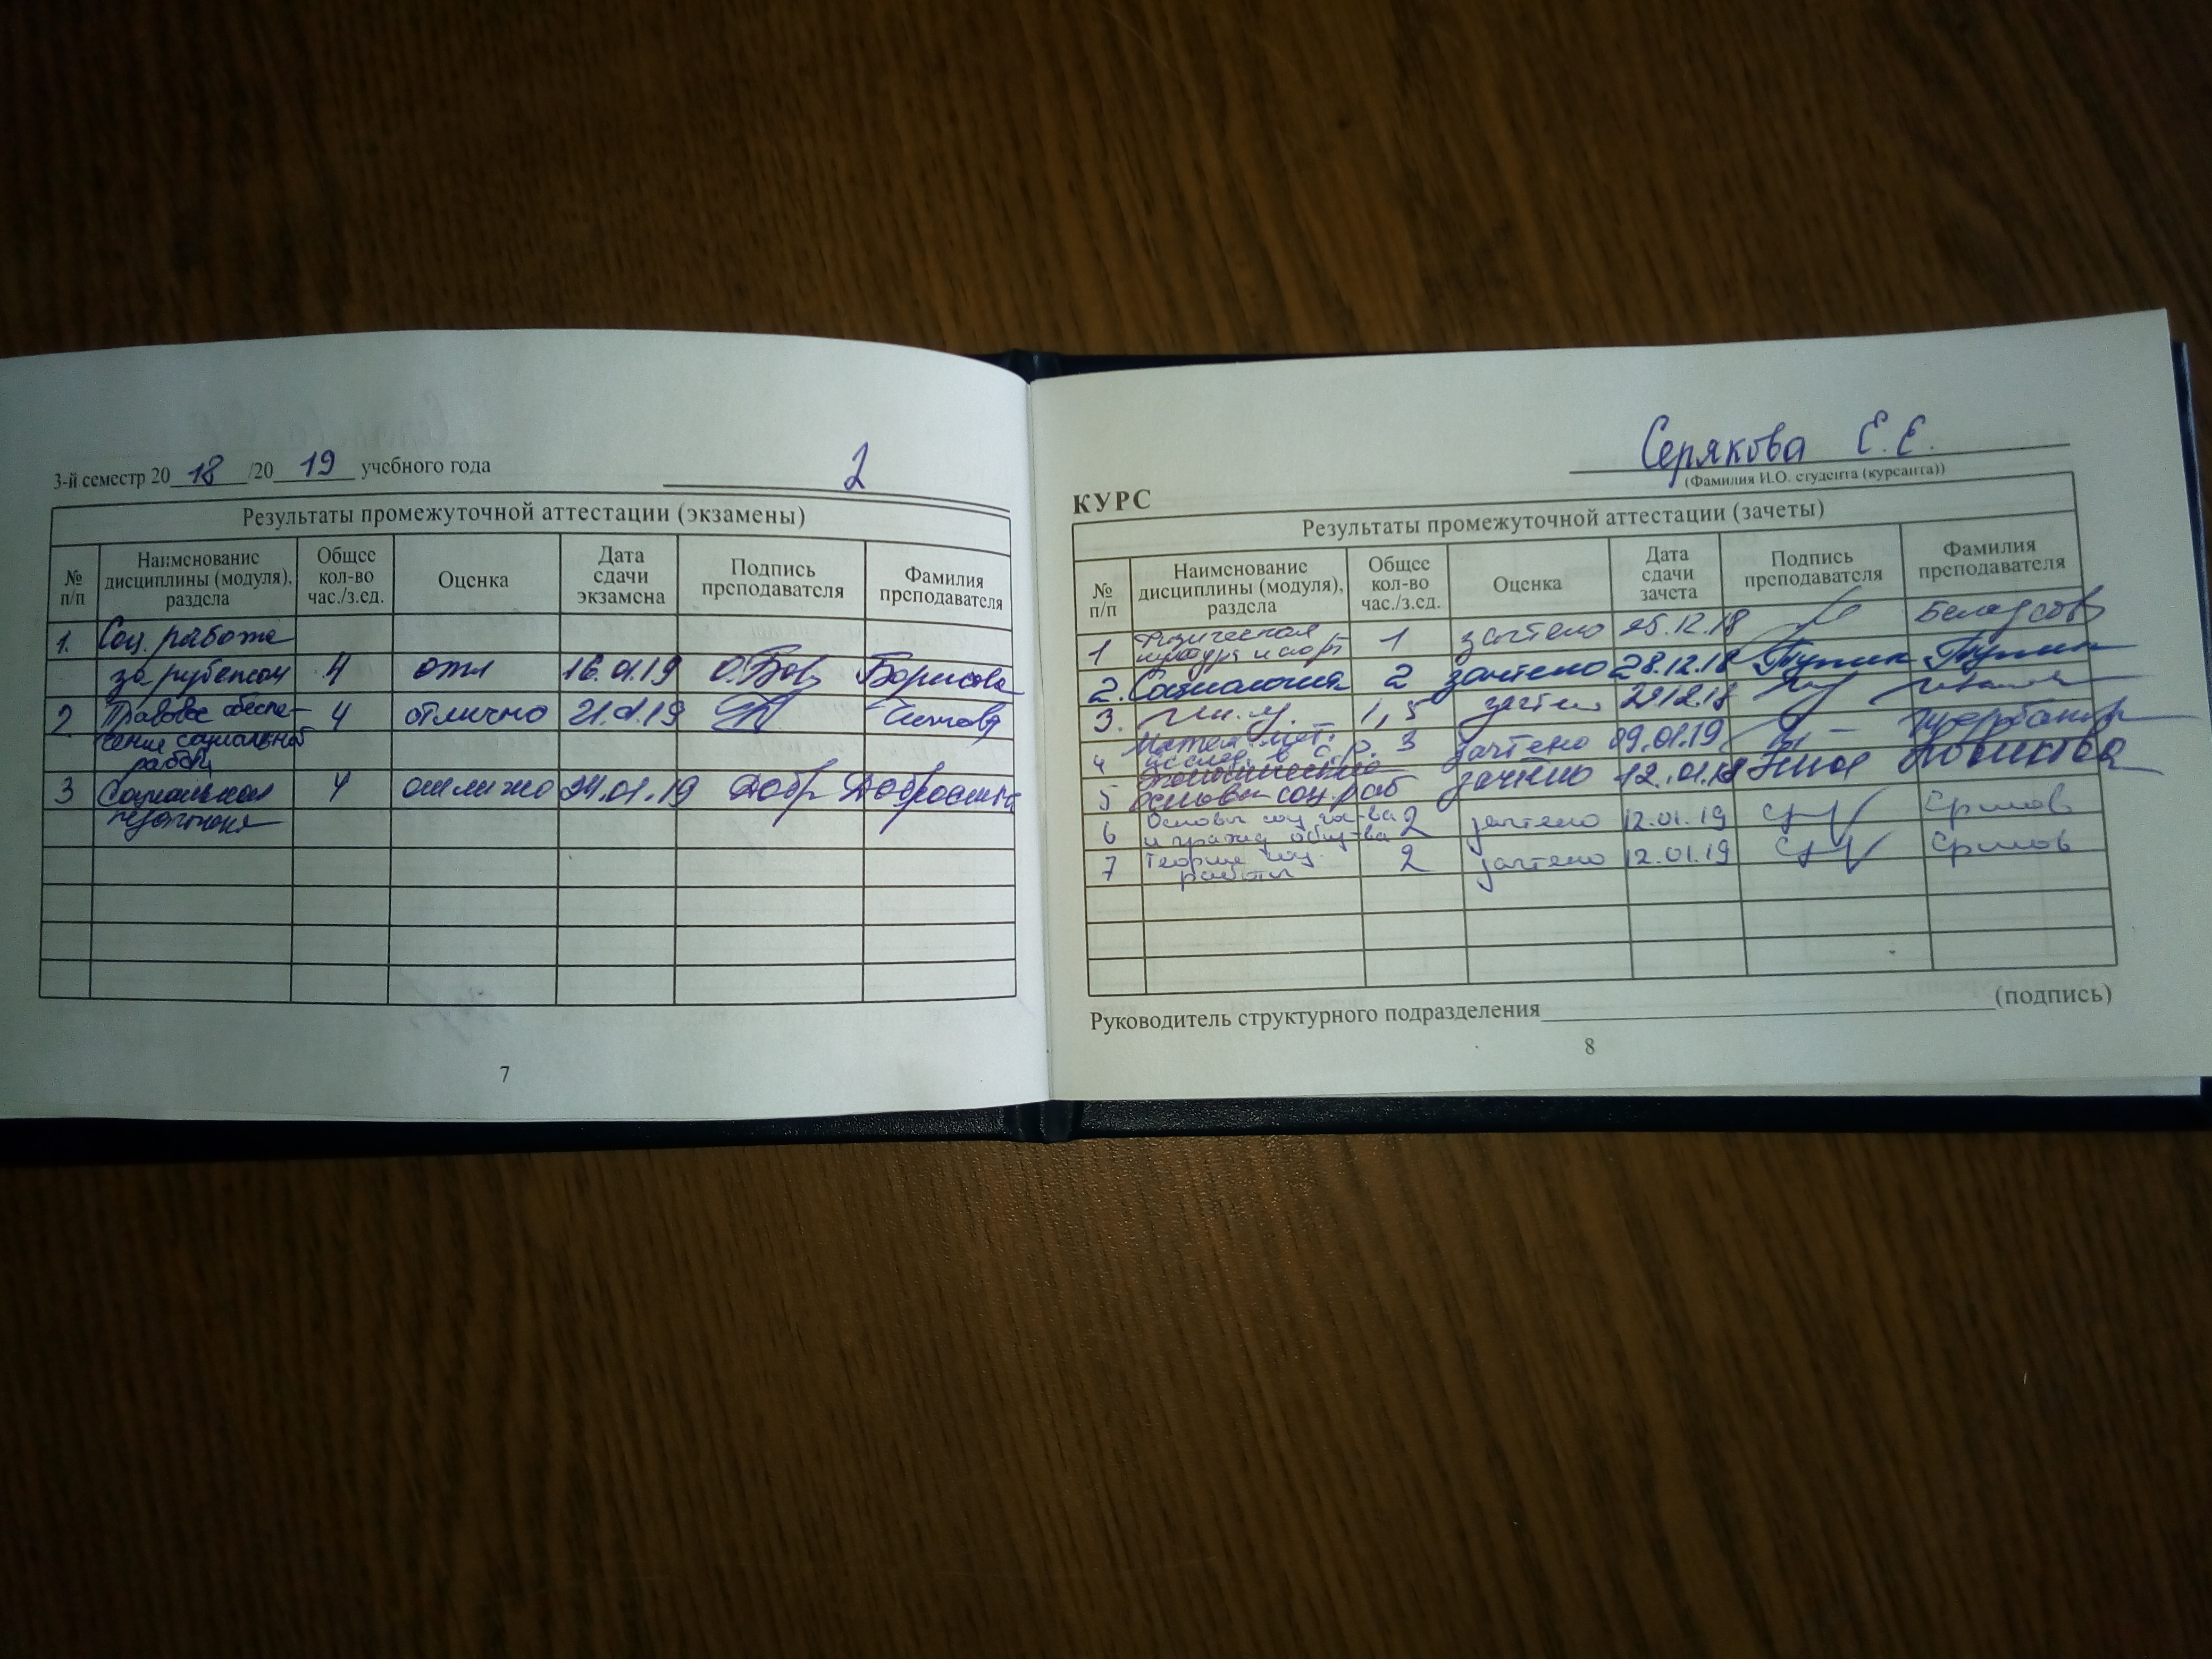 3-й семестр 20 18 /20 19 учебного года 2
Результаты промежуточной аттестации (экзамены)
№ п/п Наименование дисциплины (модуля), раздела Общее кол-во час./з.ед. Оценка Дата сдачи экзамена Подпись преподавателя Фамилия преподавателя
1. Соц. работа
за рубежом 4 отл 16.01.19 Борисова
2 Правовое обеспе- 4 отлично 21.01.19
чение социальной
работы
3 Социальная 4 отлично 24.01.19
педагогика
7
Серякова Е.Е.
(Фамилия И.О. студента (курсанта))
КУРС
Результаты промежуточной аттестации (зачеты)
№ п/п Наименование дисциплины (модуля), раздела Общее кол-во час./з.ед. Оценка Дата сдачи зачета Подпись преподавателя Фамилия преподавателя
1 Физическая
культура и спорт 1 зачтено 25.12.18 Белоусов
2. Социология 2 зачтено 28.12.18
3. Ин. яз. 1,5
4 Матем. мет.
исслед. в с.р. 3 зачтено 09.01.19
5 Экономические
основы соц. раб зачтено Новикова
6 Основы соц. гос-ва 2 зачтено 12.01.19 Ермов
и гражд. общ-ва
7 Теория соц. 2 зачтено 12.01.19 Ермов
работы
Руководитель структурного подразделения (подпись)
8